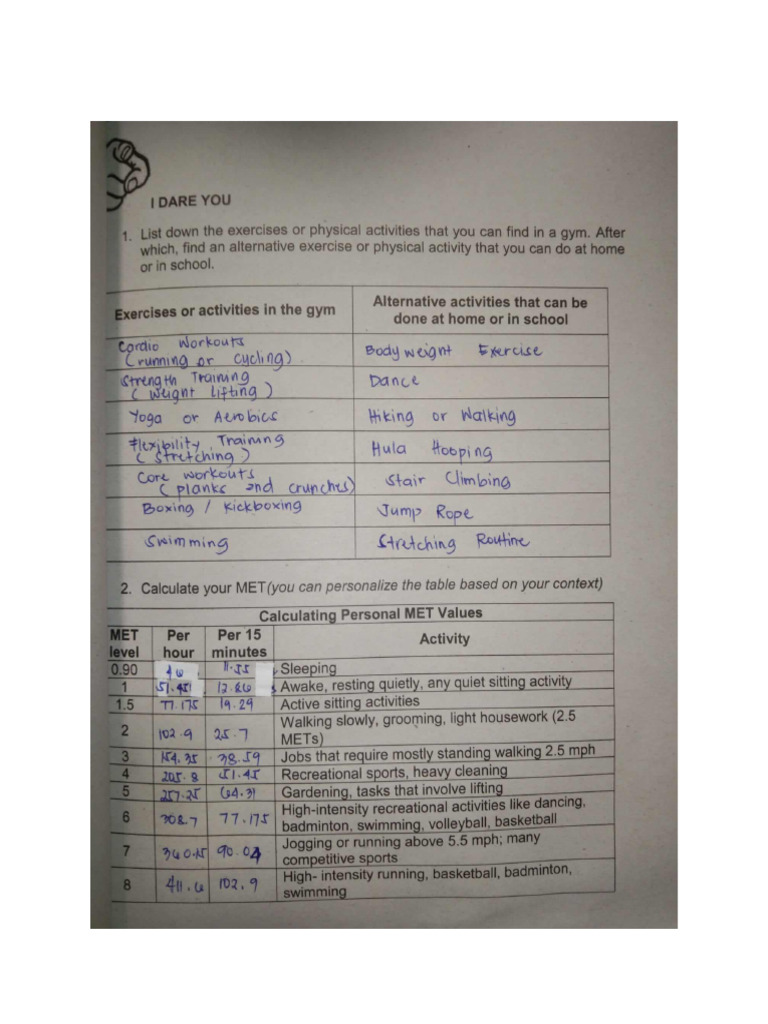 I DARE YOU
1. List down the exercises or physical activities that you can find in a gym. After
which, find an alternative exercise or physical activity that you can do at home
or in school.
Exercises or activities in the gym
Alternative activities that can be
done at home or in school
Cardio Workouts
(running or cycling)
Body weight Exercise
Strength Training
(weight lifting)
Dance
Yoga or Aerobics
Hiking or Walking
Flexibility Training
(stretching)
Hula Hooping
Core workouts
(planks and crunches)
Stair Climbing
Boxing / Kickboxing
Jump Rope
Swimming
Stretching Routine
2. Calculate your MET(you can personalize the table based on your context)
Calculating Personal MET Values
MET level Per hour Per 15 minutes Activity
0.90 11.55 Sleeping
1 51.451 12.86 Awake, resting quietly, any quiet sitting activity
1.5 77.175 19.29 Active sitting activities
2 102.9 25.7 Walking slowly, grooming, light housework (2.5
METs)
3 154.35 38.59 Jobs that require mostly standing walking 2.5 mph
4 205.8 51.45 Recreational sports, heavy cleaning
5 257.25 64.31 Gardening, tasks that involve lifting
6 308.7 77.175 High-intensity recreational activities like dancing,
badminton, swimming, volleyball, basketball
7 360.15 90.04 Jogging or running above 5.5 mph; many
competitive sports
8 411.6 102.9 High- intensity running, basketball, badminton,
swimming